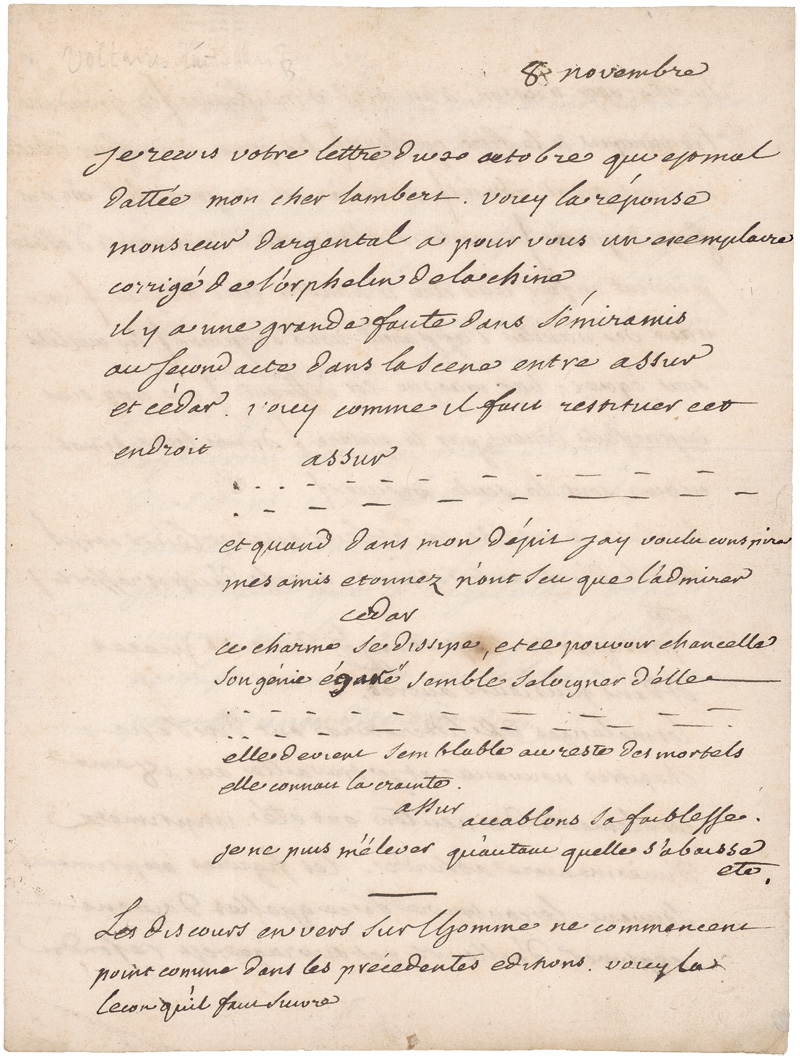 8 novembre
je recois votre lettre du 20 octobre qui est mal
dattée mon cher lambert. voicy la réponse
monsieur dargental a pour vous un exemplaire
corrigé de l'orphelin de la chine
il y a une grande faute dans sémiramis
au second acte dans la scene entre assur
et cédar. voicy comme il faut restituer cet
endroit
assur
et quand dans mon dépit jay voulu conspirer
mes amis etonnez n'ont seu que l'admirer
cedar
ce charme se dissipe, et ce pouvoir chancelle
son génie égaré semble seloigner d'elle
elle devient semblable au reste des mortels
elle connait la crainte.
assur
accablons sa faiblesse.
je ne puis m'élever qu'autant quelle s'abaisse
etc.
Les discours en vers sur l'homme ne commencent
point comme dans les précédentes editions. voicy la
lecon qu'il faut suivre